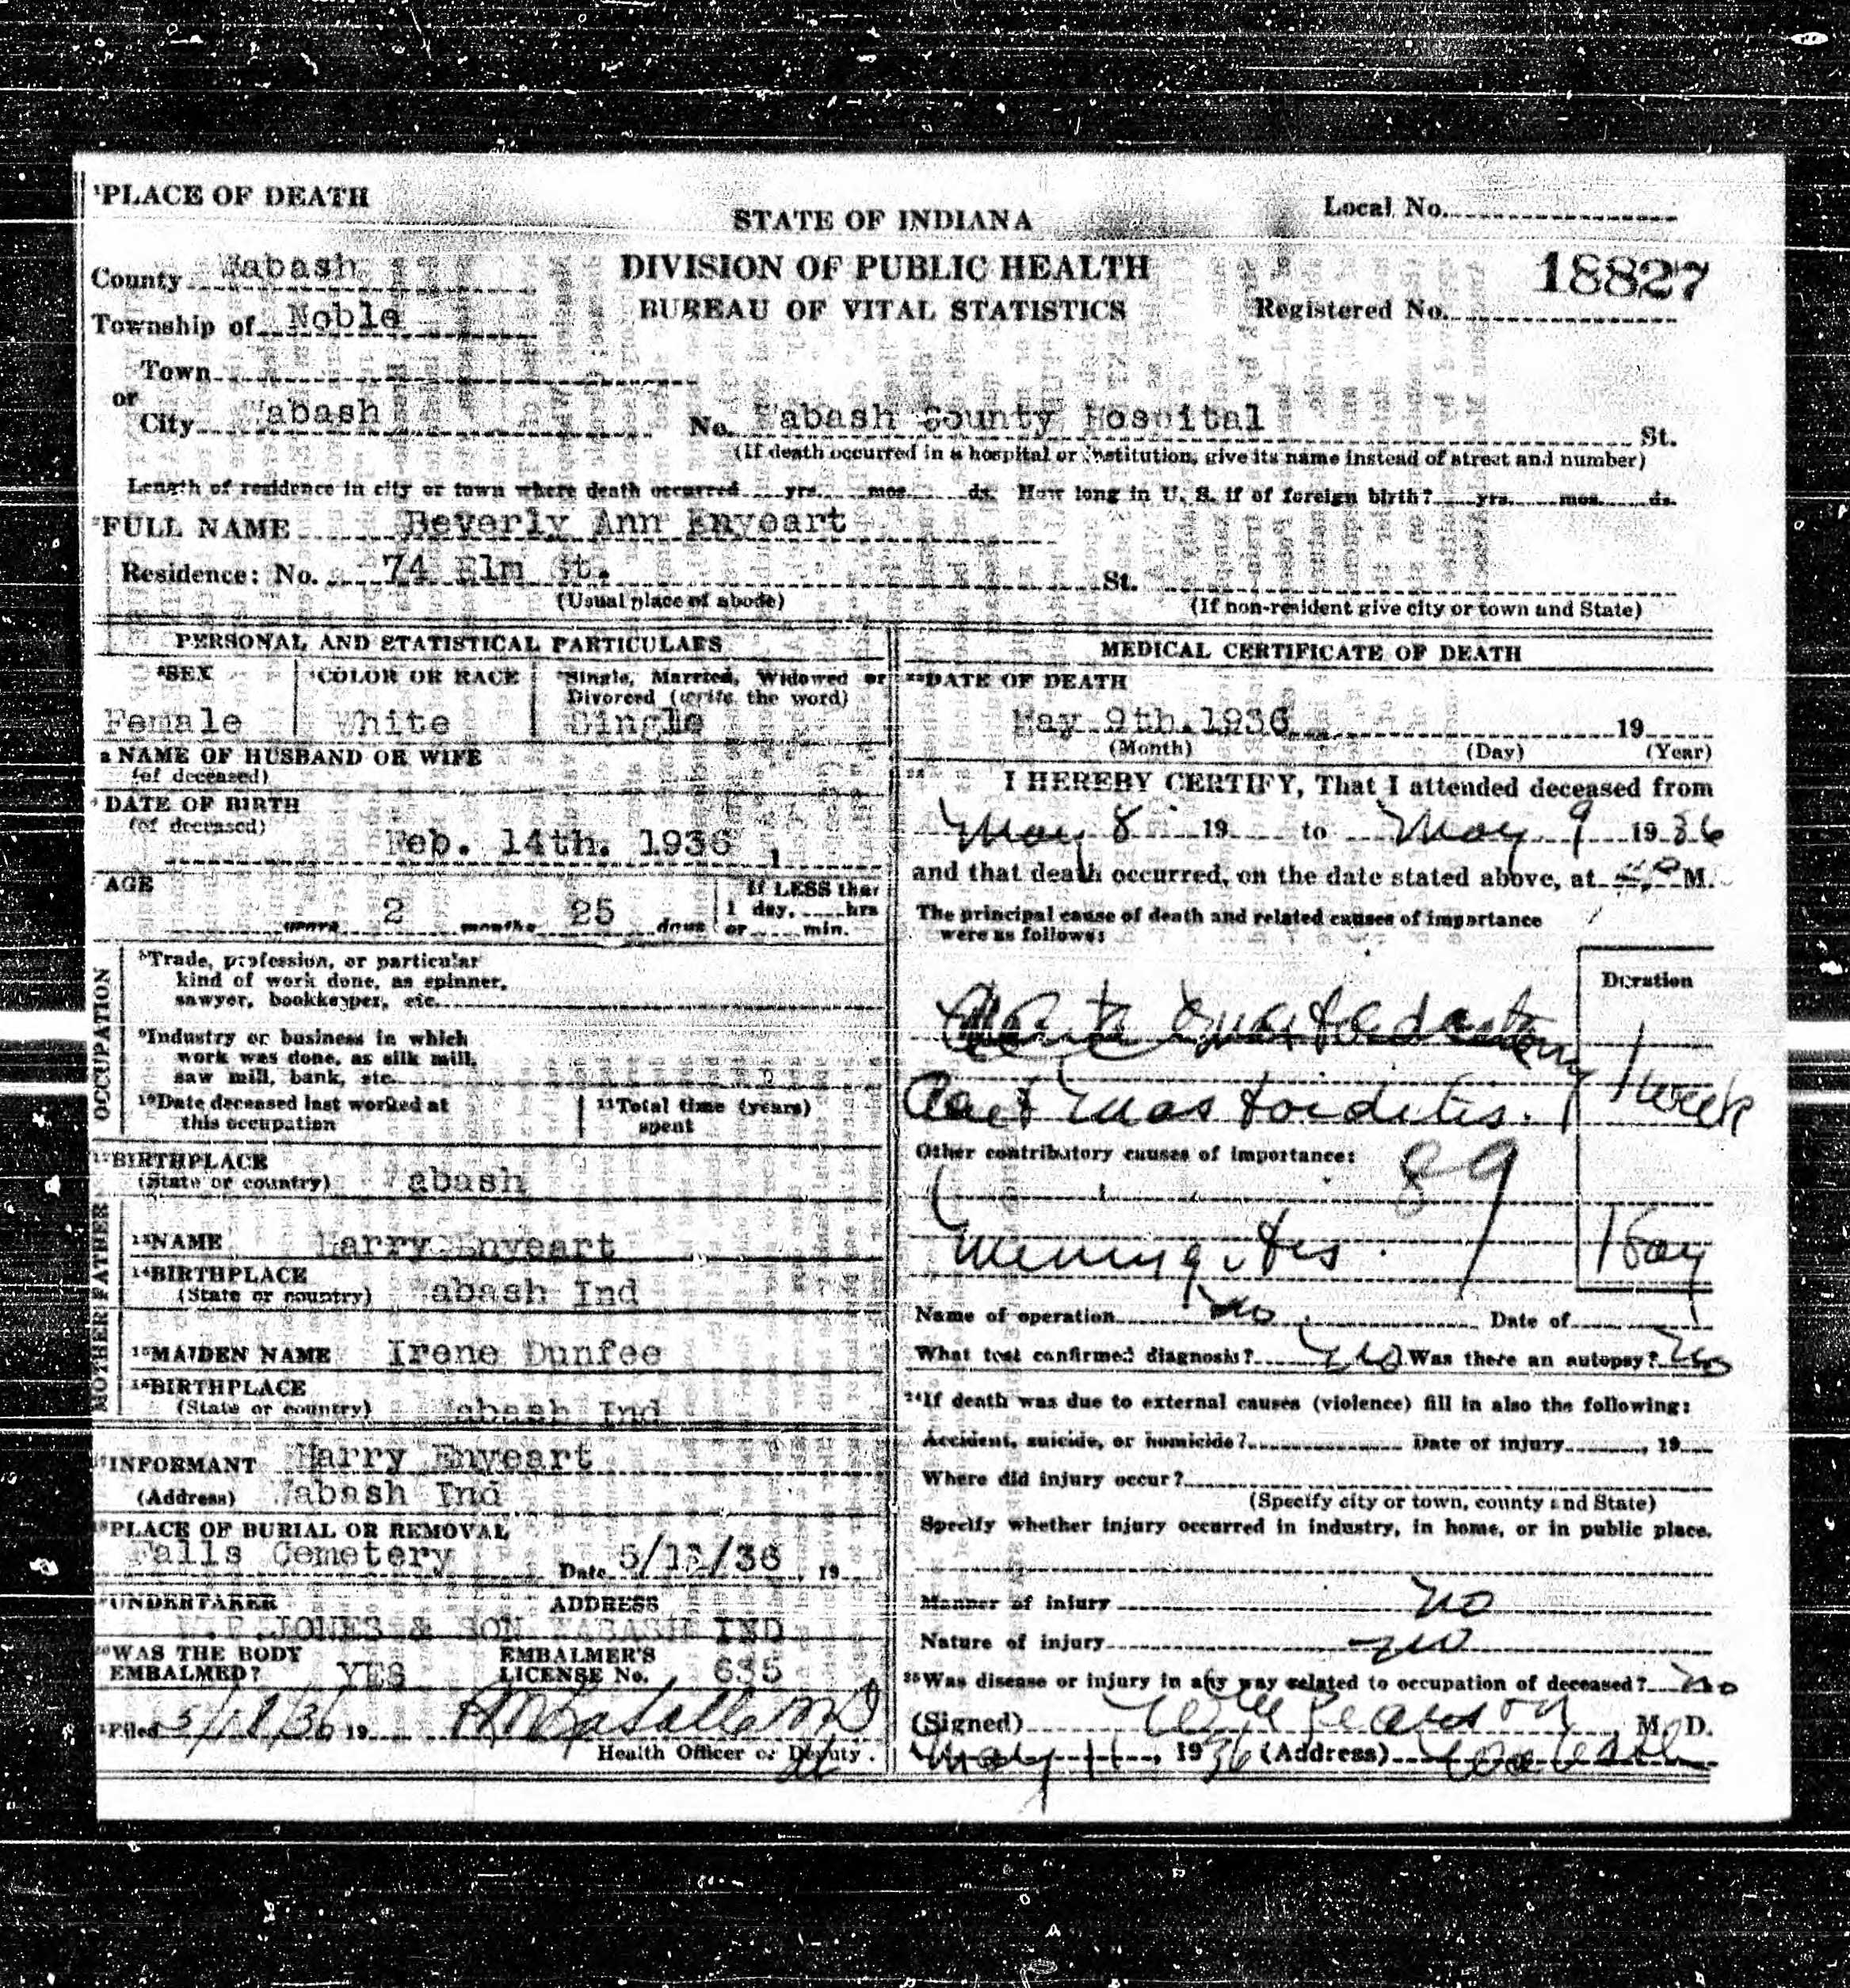 ¹PLACE OF DEATH
STATE OF INDIANA
Local No.
County Wabash
DIVISION OF PUBLIC HEALTH
18827
Township of Noble
BUREAU OF VITAL STATISTICS
Registered No.
Town
or
City Wabash No. Wabash County Hospital St.
(If death occurred in a hospital or institution, give its name instead of street and number)
Length of residence in city or town where death occurred yrs. mos. ds. How long in U. S. if of foreign birth? yrs. mos. ds.
²FULL NAME Beverly Ann Enyeart
Residence: No. 74 Elm St. St.
(Usual place of abode) (If non-resident give city or town and State)
PERSONAL AND STATISTICAL PARTICULARS
³SEX ⁴COLOR OR RACE ⁵Single, Married, Widowed or
Divorced (write the word)
Female White Single
a NAME OF HUSBAND OR WIFE
(of deceased)
DATE OF BIRTH
(of deceased)
Feb. 14th. 1936
AGE If LESS than
1 day, hrs
years 2 months 25 days or min.
OCCUPATION
⁸Trade, profession, or particular
kind of work done, as spinner,
sawyer, bookkeeper, etc.
⁹Industry or business in which
work was done, as silk mill,
saw mill, bank, etc.
¹⁰Date deceased last worked at ¹¹Total time (years)
this occupation spent
¹²BIRTHPLACE
(State or country) Wabash
FATHER
¹³NAME Harry Enyeart
¹⁴BIRTHPLACE
(State or country) Wabash Ind
MOTHER
¹⁵MAIDEN NAME Irene Dunfee
¹⁶BIRTHPLACE
(State or country) Wabash Ind
¹⁷INFORMANT Harry Enyeart
(Address) Wabash Ind
¹⁸PLACE OF BURIAL OR REMOVAL
Falls Cemetery Date 5/12/36, 19
¹⁹UNDERTAKER ADDRESS
JONES & SON WABASH IND
²⁰WAS THE BODY EMBALMER'S
EMBALMED? YES LICENSE No. 635
²¹Filed 5/18/36 19 M D
Health Officer or Deputy.
MEDICAL CERTIFICATE OF DEATH
²²DATE OF DEATH
May 9th. 1936 19
(Month) (Day) (Year)
²³ I HEREBY CERTIFY, That I attended deceased from
May 8 19 to May 9 1936
and that death occurred, on the date stated above, at M.
The principal cause of death and related causes of importance
were as follows:
Duration
Mastoiditis. 1 week
Other contributory causes of importance:
89
Meningitis. 1 Day
Name of operation no Date of
What test confirmed diagnosis? no Was there an autopsy? no
²⁴If death was due to external causes (violence) fill in also the following:
Accident, suicide, or homicide? Date of injury, 19
Where did injury occur?
(Specify city or town, county and State)
Specify whether injury occurred in industry, in home, or in public place.
Manner of injury no
Nature of injury no
²⁵Was disease or injury in any way related to occupation of deceased? no
(Signed) Pearson, M. D.
May 11, 1936 (Address) Wabash